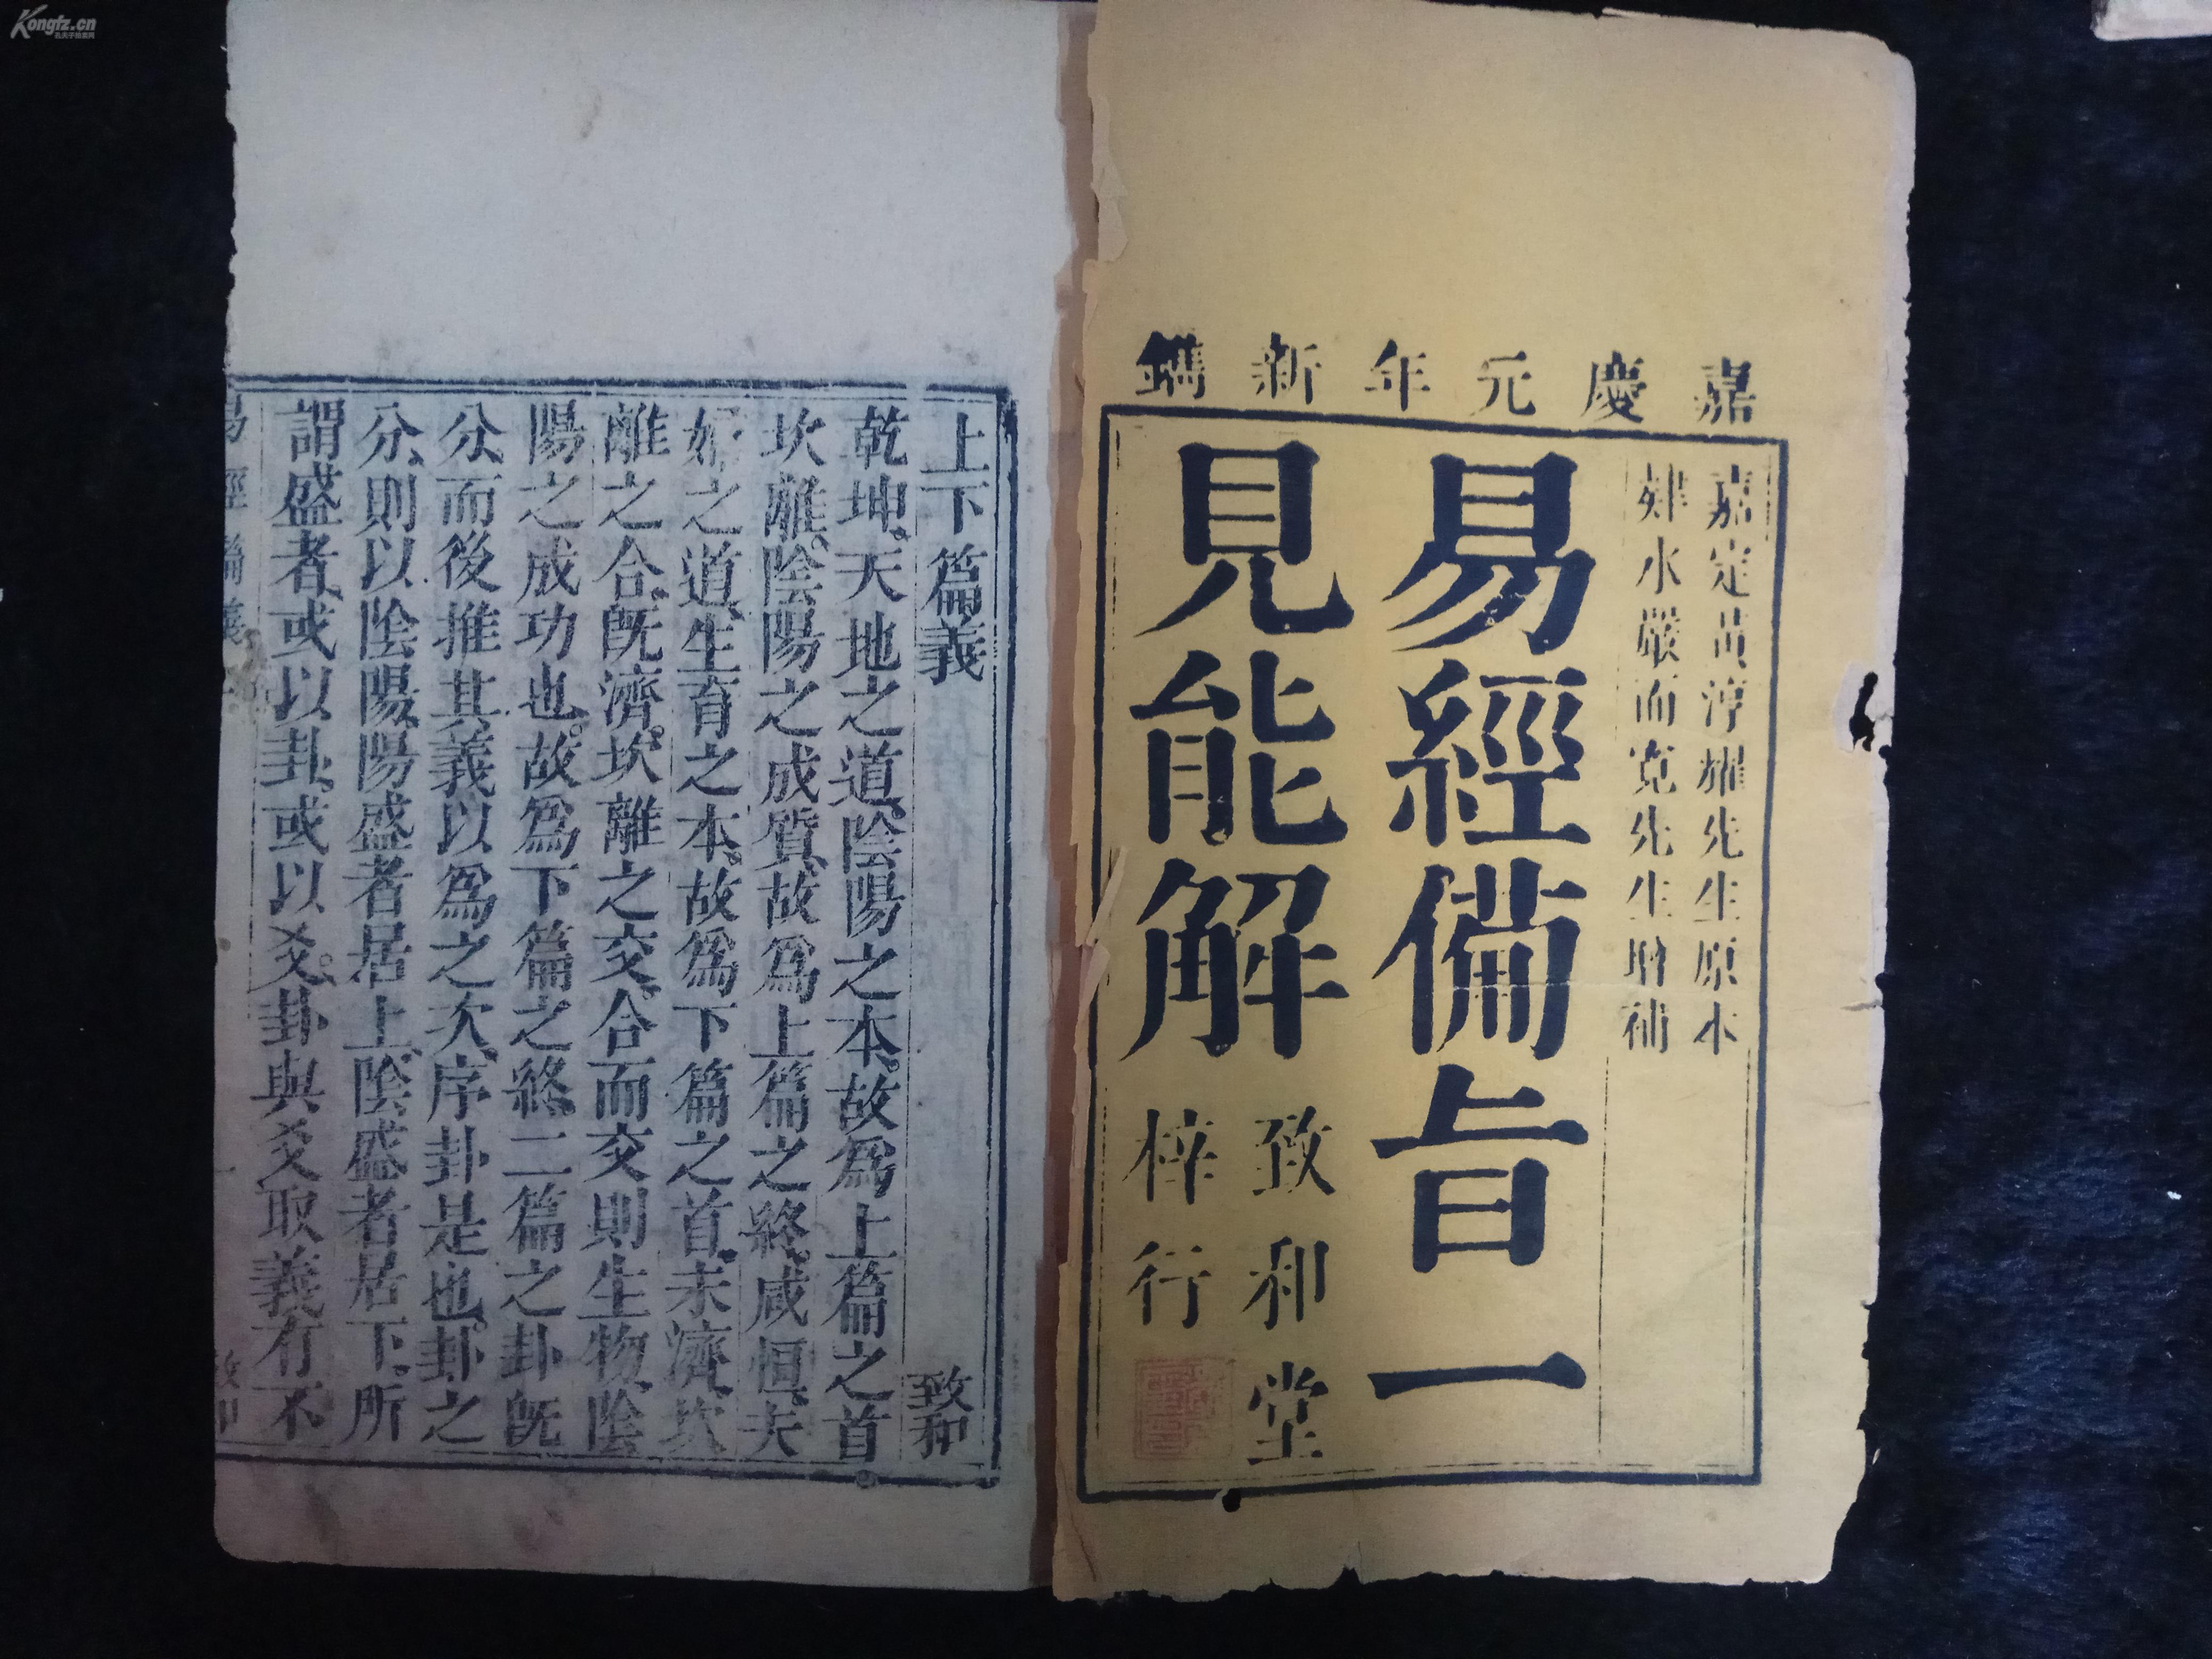 Kongfz.cn
嘉慶元年新鐫
嘉定黃淳耀先生原本
𨛭水嚴而寬先生增補
易經備旨一
見能解
致和堂
梓行
上下篇義
致和
乾坤天地之道、陰陽之本。故爲上篇之首。
坎離、陰陽之成質、故爲上篇之終。咸恒、夫
婦之道、生育之本。故爲下篇之首。未濟、坎
離之合。旣濟、坎離之交。合而交則生物、陰
陽之成功也。故爲下篇之終。二篇之卦旣
分、而後推其義以爲之次、序卦是也。卦之
分、則以陰陽。陽盛者居上、陰盛者居下、所
謂盛者、或以卦、或以爻。卦與爻取義有不
易經